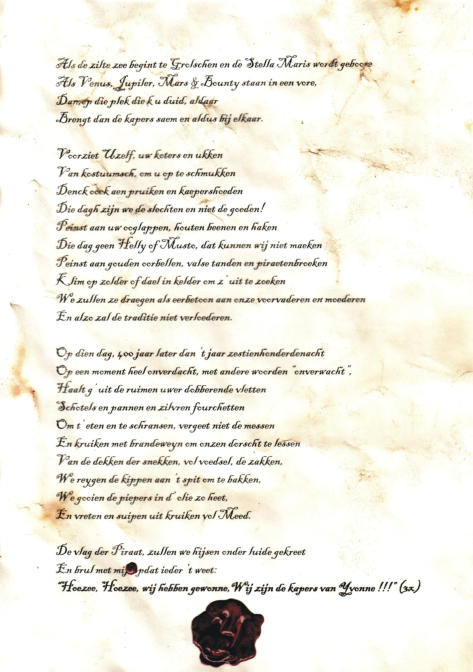 Als de zilte zee begint te Grolschen en de Stella Maris wordt geboore
Als Venus, Jupiler, Mars & Bounty staan in een vore,
Dan op die plek die k u duid, aldaar
Brengt dan de kapers saem en aldus bij elkaar.
Voorziet Uzelf, uw koters en ukken
Van kostuumsch, om u op te schmukken
Denck oock aen pruiken en kaepershoeden
Die dagh zijn we de slechten en niet de goeden!
Peinst aan uw ooglappen, houten beenen en haken
Die dag geen Helly of Musto, dat kunnen wij niet maeken
Peinst aan gouden oorbellen, valse tanden en piraetenbroeken
Klim op zolder of dael in kelder om z' uit te zoeken
We zullen ze draegen als eerbetoon aan onze voorvaderen en moederen
En alzo zal de traditie niet verloederen.
Op dien dag, 400 jaar later dan 't jaar zestienhonderdenacht
Op een moment heel onverdacht, met andere woorden "onverwacht",
Haalt g' uit de ruimen uwer dobberende vletten
Schotels en pannen en zilvren fourchetten
Om t' eten en te schransen, vergeet niet de messen
En kruiken met brandeweyn om onzen dorscht te lessen
Van de dekken der snekken, vol voedsel, de zakken,
We reygen de kippen aan 't spit om te bakken,
We gooien de piepers in d' olie zo heet,
En vreten en suipen uit kruiken vol Meed.
De vlag der Piraat, zullen we hijsen onder luide gekreet
En brul met mij opdat ieder 't weet:
"Hoezee, Hoezee, wij hebben gewonne, Wij zijn de kapers van Yvonne !!!" (3x)